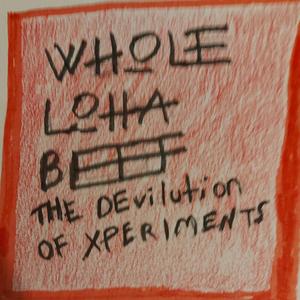 WHOLE
LOHA
BEEF
THE DEvilution
OF XPERIMENTS